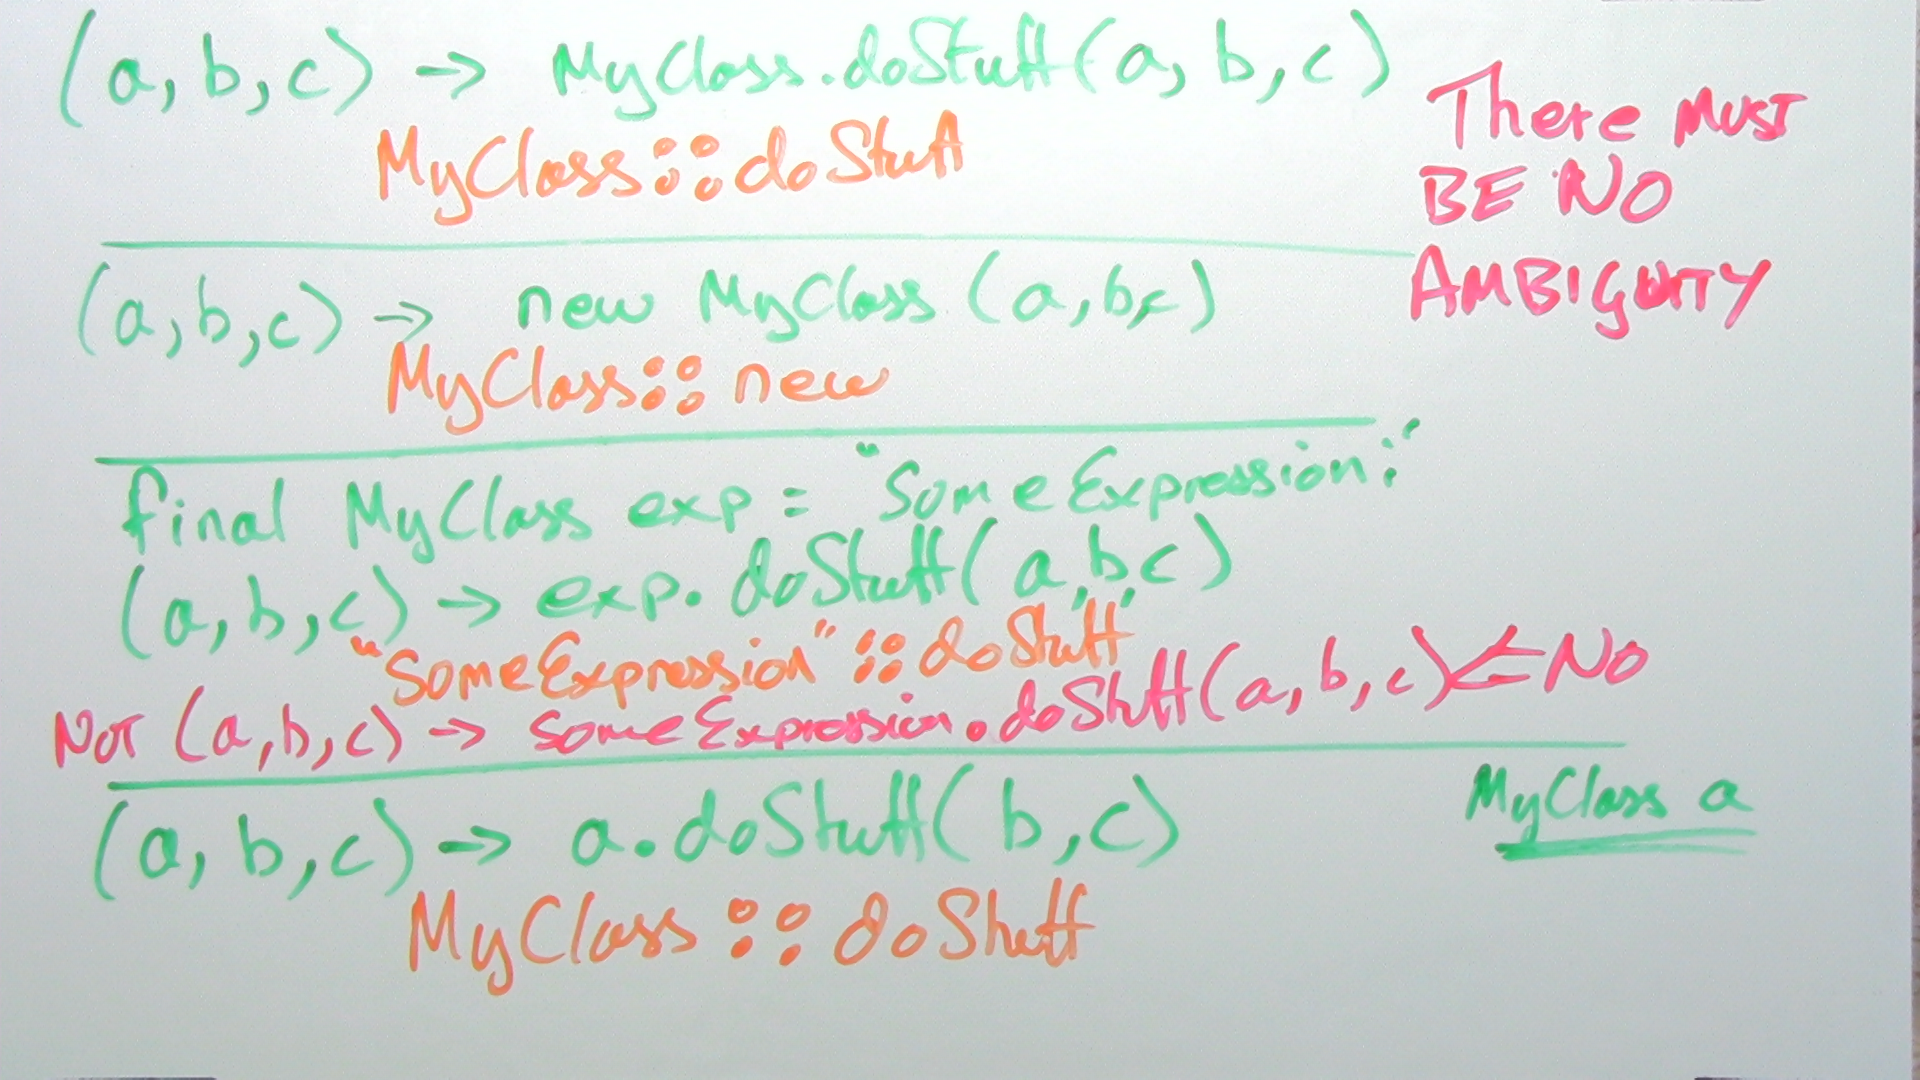 (a, b, c) -> MyClass.doStuff(a, b, c)
MyClass::doStuff
There MUST
BE NO
AMBIGUITY
(a, b, c) -> new MyClass (a, b, c)
MyClass::new
final MyClass exp = "SomeExpression;"
(a, b, c) -> exp.doStuff(a, b, c)
"SomeExpression"::doStuff
NOT (a, b, c) -> SomeExpression.doStuff(a, b, c) <= NO
(a, b, c) -> a.doStuff(b, c)
MyClass a
MyClass::doStuff